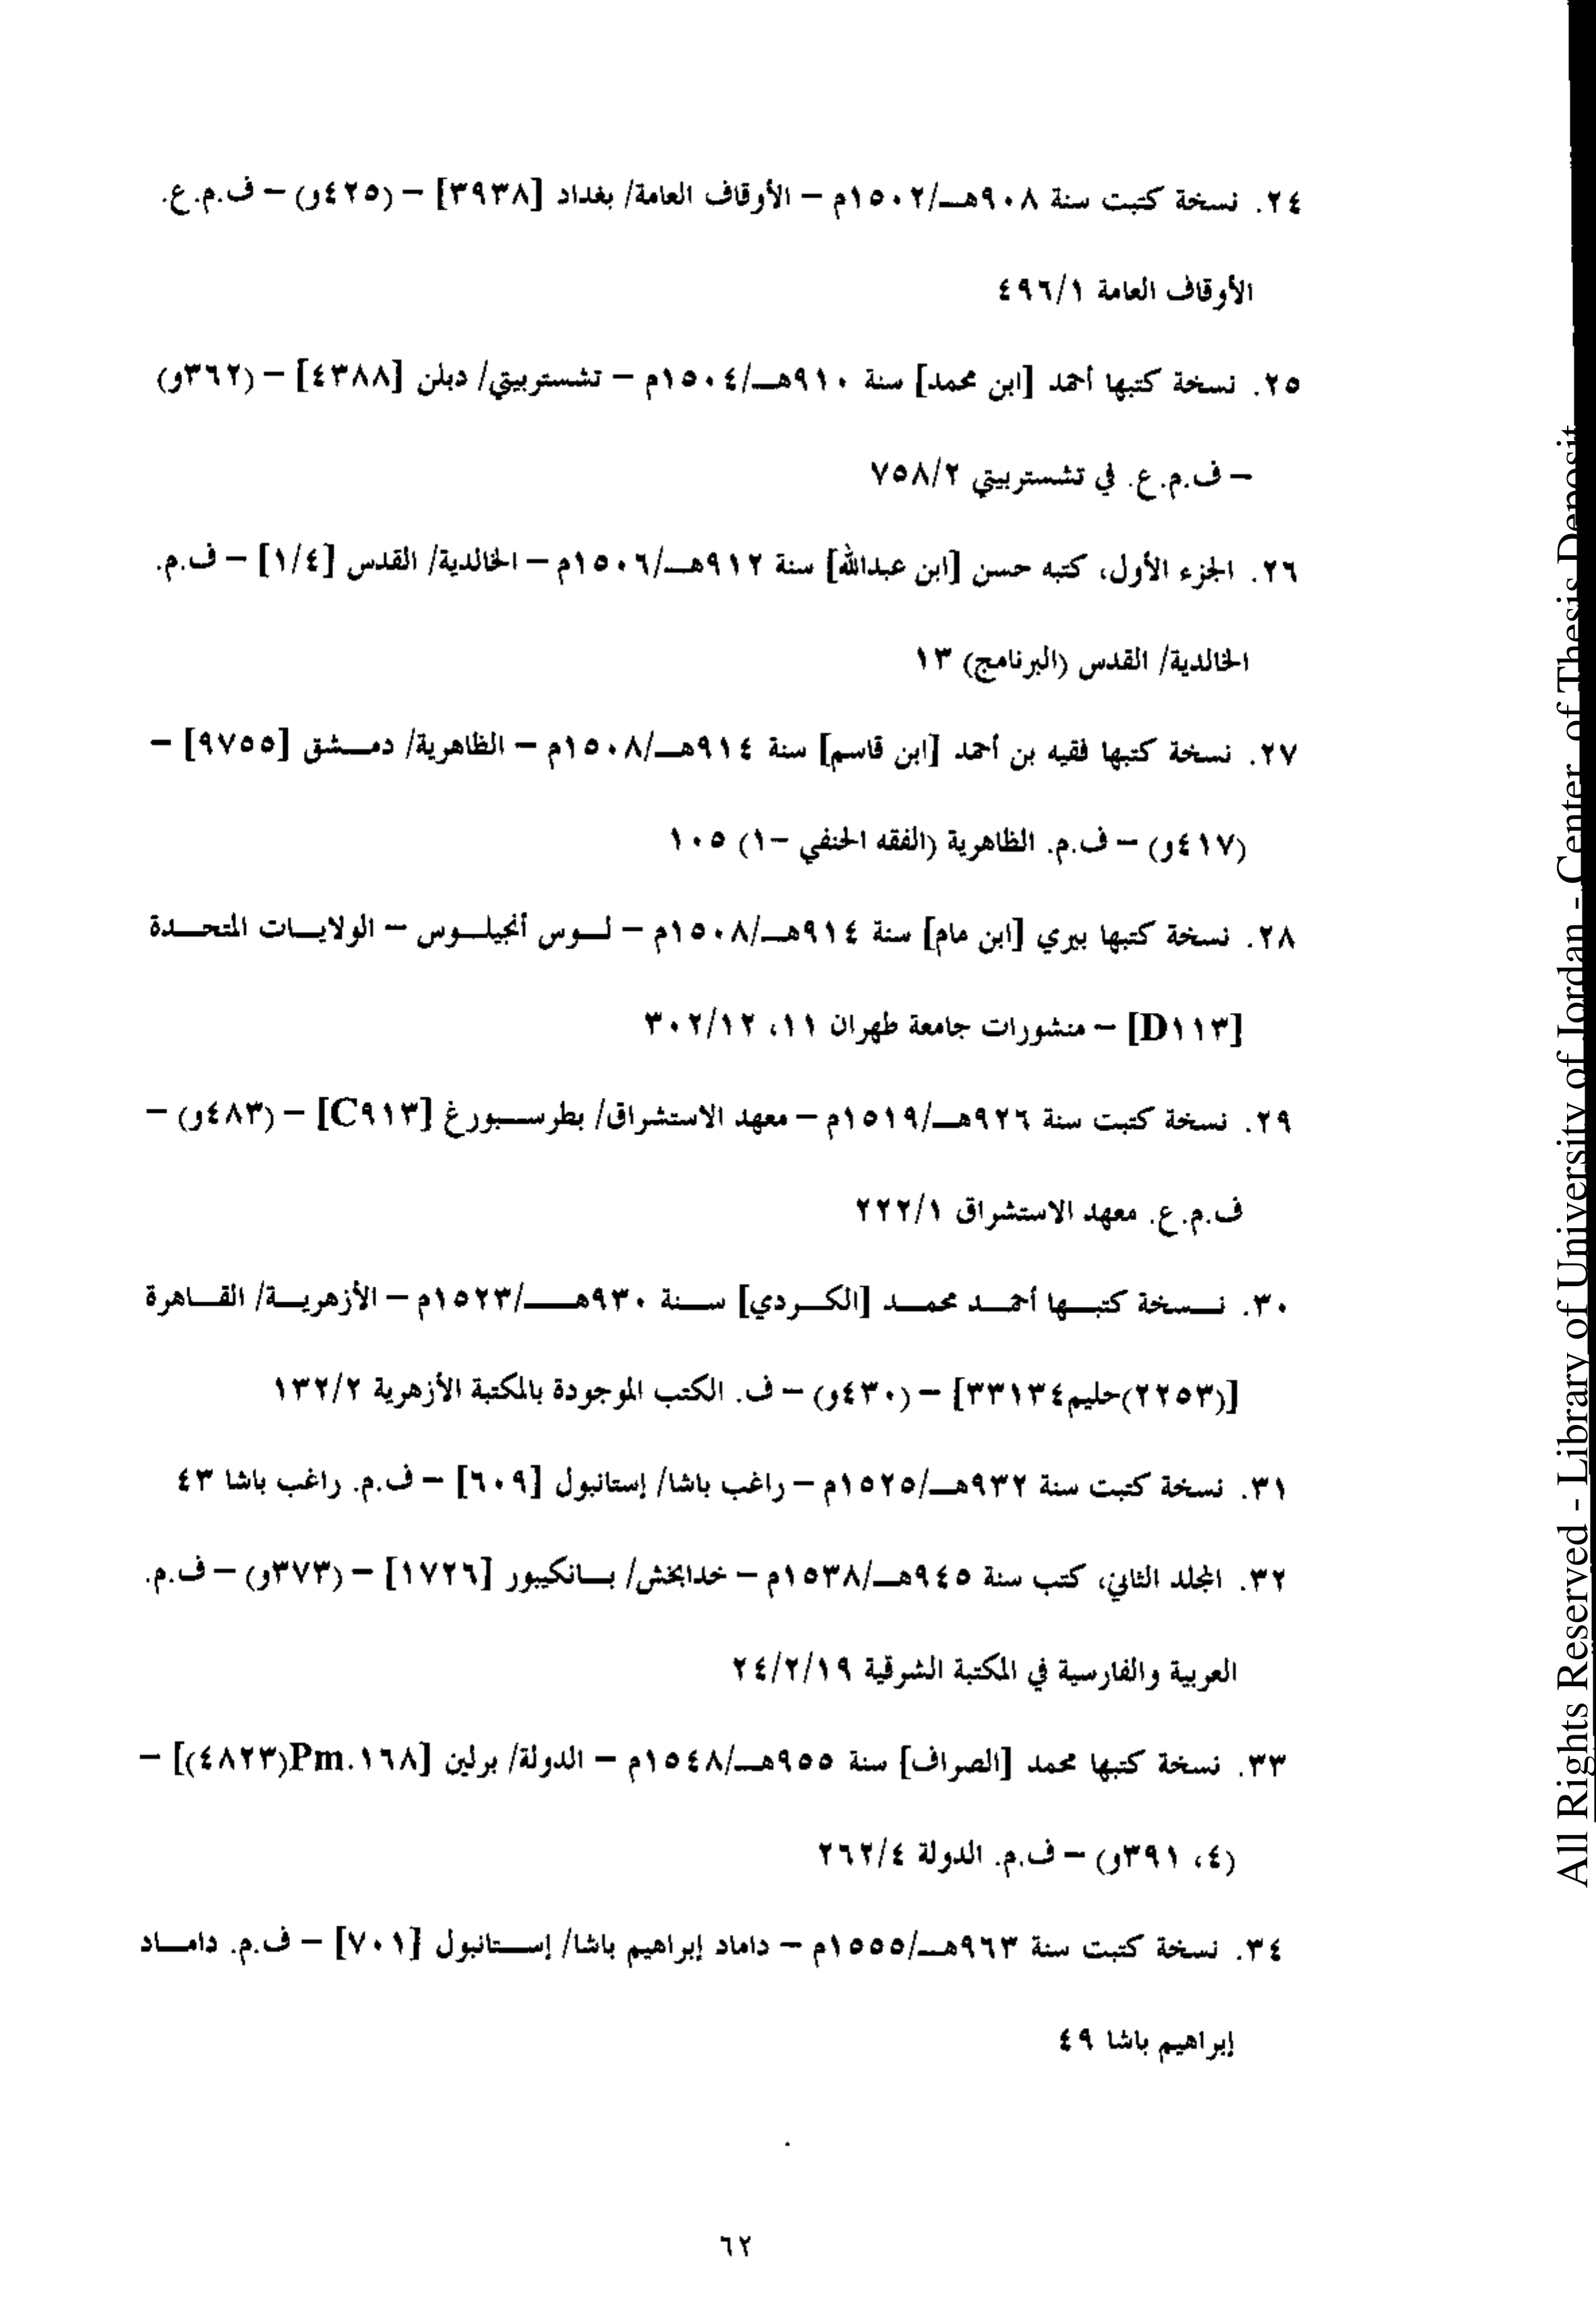 ٢٤. نسخة كتبت سنة ٩٠٨هـ/١٥٠٢م – الأوقاف العامة/ بغداد [٣٩٣٨] – (٤٢٥و) – ف.م.ع.
الأوقاف العامة ٤٩٦/١
٢٥. نسخة كتبها أحمد [ابن محمد] سنة ٩١٠هـ/١٥٠٤م – تشستربيتي/ دبلن [٤٣٨٨] – (٣٦٢و)
– ف.م.ع. في تشستربيتي ٧٥٨/٢
٢٦. الجزء الأول، كتبه حسن [ابن عبدالله] سنة ٩١٢هـ/١٥٠٦م – الخالدية/ القدس [١/٤] – ف.م.
الخالدية/ القدس (البرنامج) ١٣
٢٧. نسخة كتبها فقيه بن أحمد [ابن قاسم] سنة ٩١٤هـ/١٥٠٨م – الظاهرية/ دمشق [٩٧٥٥] –
(٤١٧و) – ف.م. الظاهرية (الفقه الحنفي –١) ١٠٥
٢٨. نسخة كتبها بيري [ابن مام] سنة ٩١٤هـ/١٥٠٨م – لوس أنجيلوس – الولايات المتحدة
[D١١٣] – منشورات جامعة طهران ١١، ٣٠٢/١٢
٢٩. نسخة كتبت سنة ٩٢٦هـ/١٥١٩م – معهد الاستشراق/ بطرسبورغ [C٩١٣] – (٤٨٣و) –
ف.م.ع. معهد الاستشراق ٢٢٢/١
٣٠. نسخة كتبها أحمد محمد [الكردي] سنة ٩٣٠هـ/١٥٢٣م – الأزهرية/ القاهرة
[(٢٢٥٣)حليم٣٣١٣٤] – (٤٣٠و) – ف. الكتب الموجودة بالمكتبة الأزهرية ١٣٢/٢
٣١. نسخة كتبت سنة ٩٣٢هـ/١٥٢٥م – راغب باشا/ إستانبول [٦٠٩] – ف.م. راغب باشا ٤٣
٣٢. المجلد الثاني، كتب سنة ٩٤٥هـ/١٥٣٨م – خدابخش/ بانكيبور [١٧٢٦] – (٣٧٣و) – ف.م.
العربية والفارسية في المكتبة الشرقية ٢٤/٢/١٩
٣٣. نسخة كتبها محمد [الصراف] سنة ٩٥٥هـ/١٥٤٨م – الدولة/ برلين [Pm.١٦٨(٤٨٢٣)] –
(٤، ٣٩١و) – ف.م. الدولة ٢٦٢/٤
٣٤. نسخة كتبت سنة ٩٦٣هـ/١٥٥٥م – داماد إبراهيم باشا/ إستانبول [٧٠١] – ف.م. داماد
إبراهيم باشا ٤٩
٦٢
All Rights Reserved - Library of University of Jordan - Center of Thesis Deposit